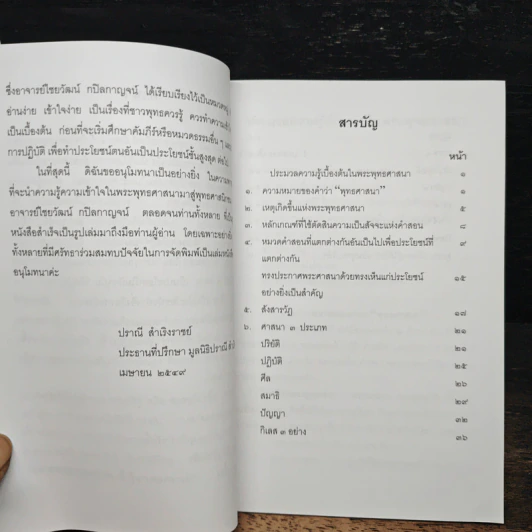 ซึ่งอาจารย์ไชยวัฒน์ กปิลกาญจน์ ได้เรียบเรียงไว้เป็นหมวดหมู่
อ่านง่าย เข้าใจง่าย เป็นเรื่องที่ชาวพุทธควรรู้ ควรทำความเข้า
เป็นเบื้องต้น ก่อนที่จะเริ่มศึกษาคัมภีร์หรือหมวดธรรมอื่น ๆ
การปฏิบัติ เพื่อทำประโยชน์ตนอันเป็นประโยชน์ชั้นสูงสุด ต่อไป
ในที่สุดนี้ ดิฉันขออนุโมทนาเป็นอย่างยิ่ง ในความ
ที่จะนำความรู้ความเข้าใจในพระพุทธศาสนามาสู่พุทธศาสนิก
อาจารย์ไชยวัฒน์ กปิลกาญจน์ ตลอดจนท่านทั้งหลาย
หนังสือสำเร็จเป็นรูปเล่มมาถึงมือท่านผู้อ่าน โดยเฉพาะอย่าง
ทั้งหลายที่มีศรัทธาร่วมสมทบปัจจัยในการจัดพิมพ์เป็นเล่มหนังสือ
อนุโมทนาค่ะ
ปราณี สำเริงราชย์
ประธานที่ปรึกษา มูลนิธิปราณี
เมษายน ๒๕๔๙
สารบัญ
หน้า
ประมวลความรู้เบื้องต้นในพระพุทธศาสนา ๑
๑. ความหมายของคำว่า "พุทธศาสนา" ๑
๒. เหตุเกิดขึ้นแห่งพระพุทธศาสนา ๕
๓. หลักเกณฑ์ที่ใช้ตัดสินความเป็นสัจจะแห่งคำสอน ๘
๔. หมวดคำสอนที่แตกต่างกันอันเป็นไปเพื่อประโยชน์ที่ ๙
แตกต่างกัน
ทรงประกาศพระศาสนาด้วยทรงเห็นแก่ประโยชน์ ๑๕
อย่างยิ่งเป็นสำคัญ
๕. สังสารวัฏ ๑๗
๖. ศาสนา ๓ ประเภท ๒๑
ปริยัติ ๒๑
ปฏิบัติ ๒๕
ศีล ๒๖
สมาธิ ๒๙
ปัญญา ๓๒
กิเลส ๓ อย่าง ๓๖